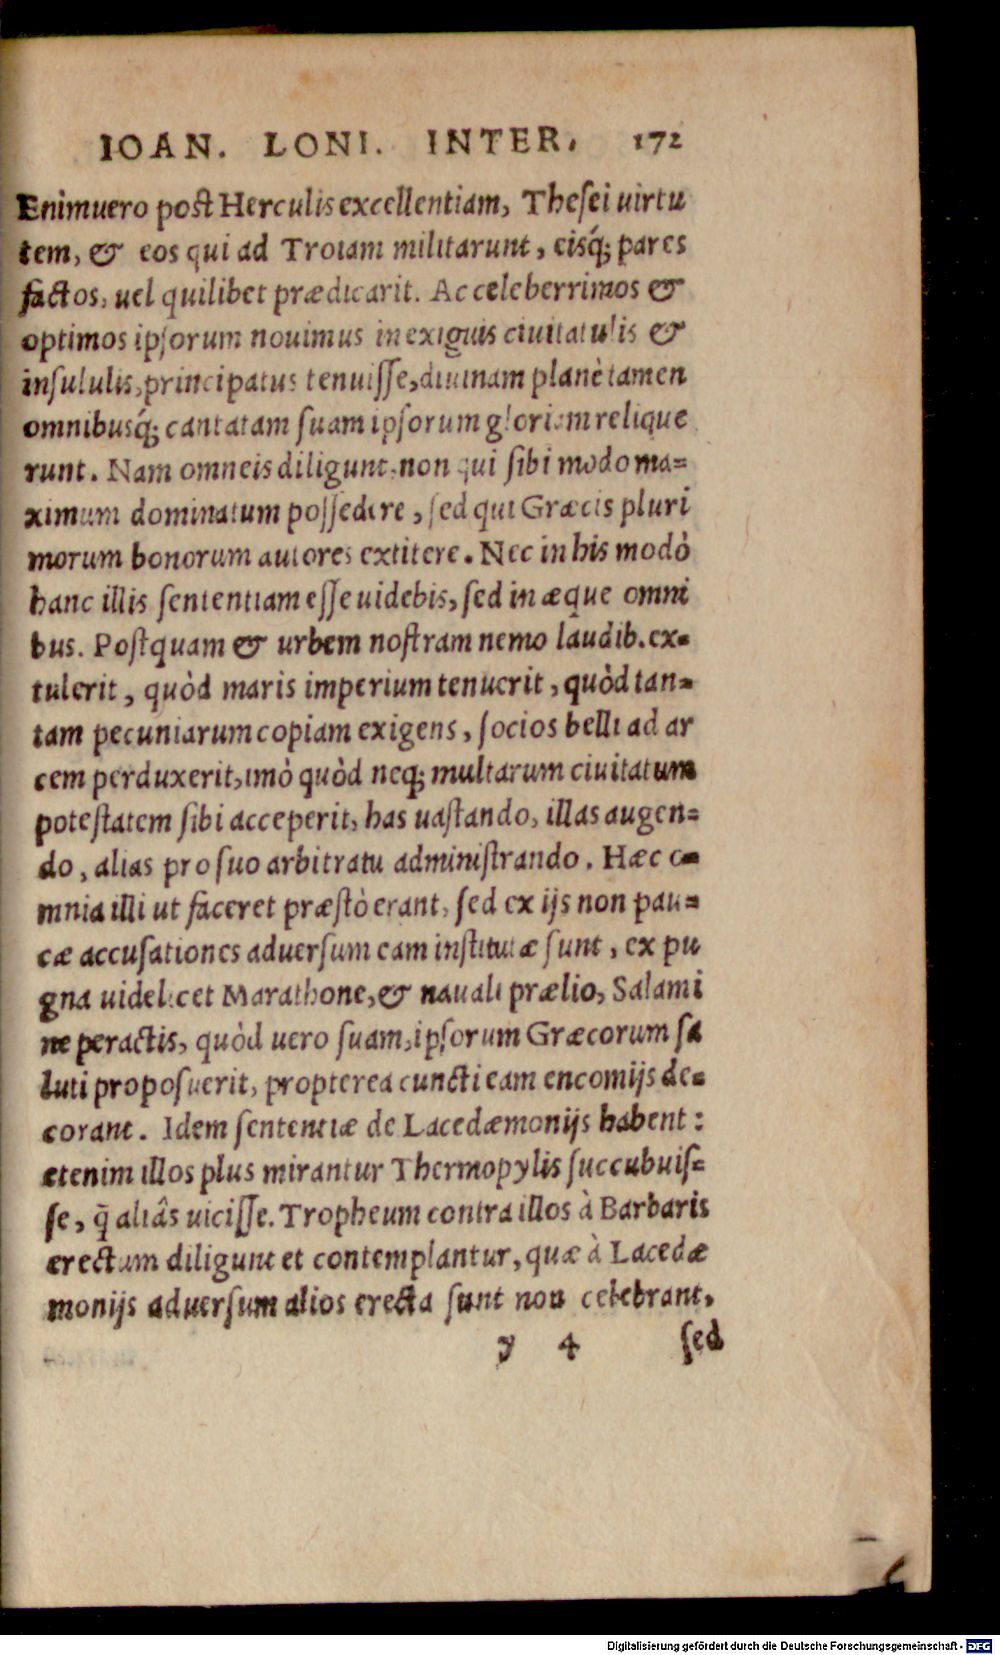 IOAN. LONI. INTER. 172
Enimuero post Herculis excellentiam, Thesei uirtu
tem, & eos qui ad Troiam militarunt, eisq́; pares
factos, uel quilibet prædicarit. Ac celeberrimos &
optimos ipsorum nouimus in exiguis ciuitatulis &
insululis, principatus tenuisse, diuinam planè tamen
omnibusq́; cantatam suam ipsorum gloriam relique
runt. Nam omneis diligunt, non qui sibi modo ma=
ximum dominatum possedere, sed qui Græcis pluri
morum bonorum autores extitere. Nec in his modò
hanc illis sententiam esse uidebis, sed in æque omni
bus. Postquam & urbem nostram nemo laudib. ex=
tulerit, quòd maris imperium tenuerit, quòd tan=
tam pecuniarum copiam exigens, socios belli ad ar
cem perduxerit, imò quòd neq; multarum ciuitatum
potestatem sibi acceperit, has uastando, illas augen=
do, alias pro suo arbitratu administrando. Hæc o=
mnia illi ut faceret præstò erant, sed ex ijs non pau=
cæ accusationes aduersum eam institutæ sunt, ex pu
gna uidelicet Marathone, & nauali prælio, Salami
ne peractis, quòd uero suam, ipsorum Græcorum sa
luti proposuerit, propterea cuncti eam encomijs de=
corant. Idem sententiæ de Lacedæmonijs habent:
etenim illos plus mirantur Thermopylis succubuis=
se, q̃ aliâs uicisse. Tropheum contra illos à Barbaris
erectum diligunt et contemplantur, quæ à Lacedæ
monijs aduersum alios erecta sunt non celebrant,
y 4 sed
Digitalisierung gefördert durch die Deutsche Forschungsgemeinschaft - DFG